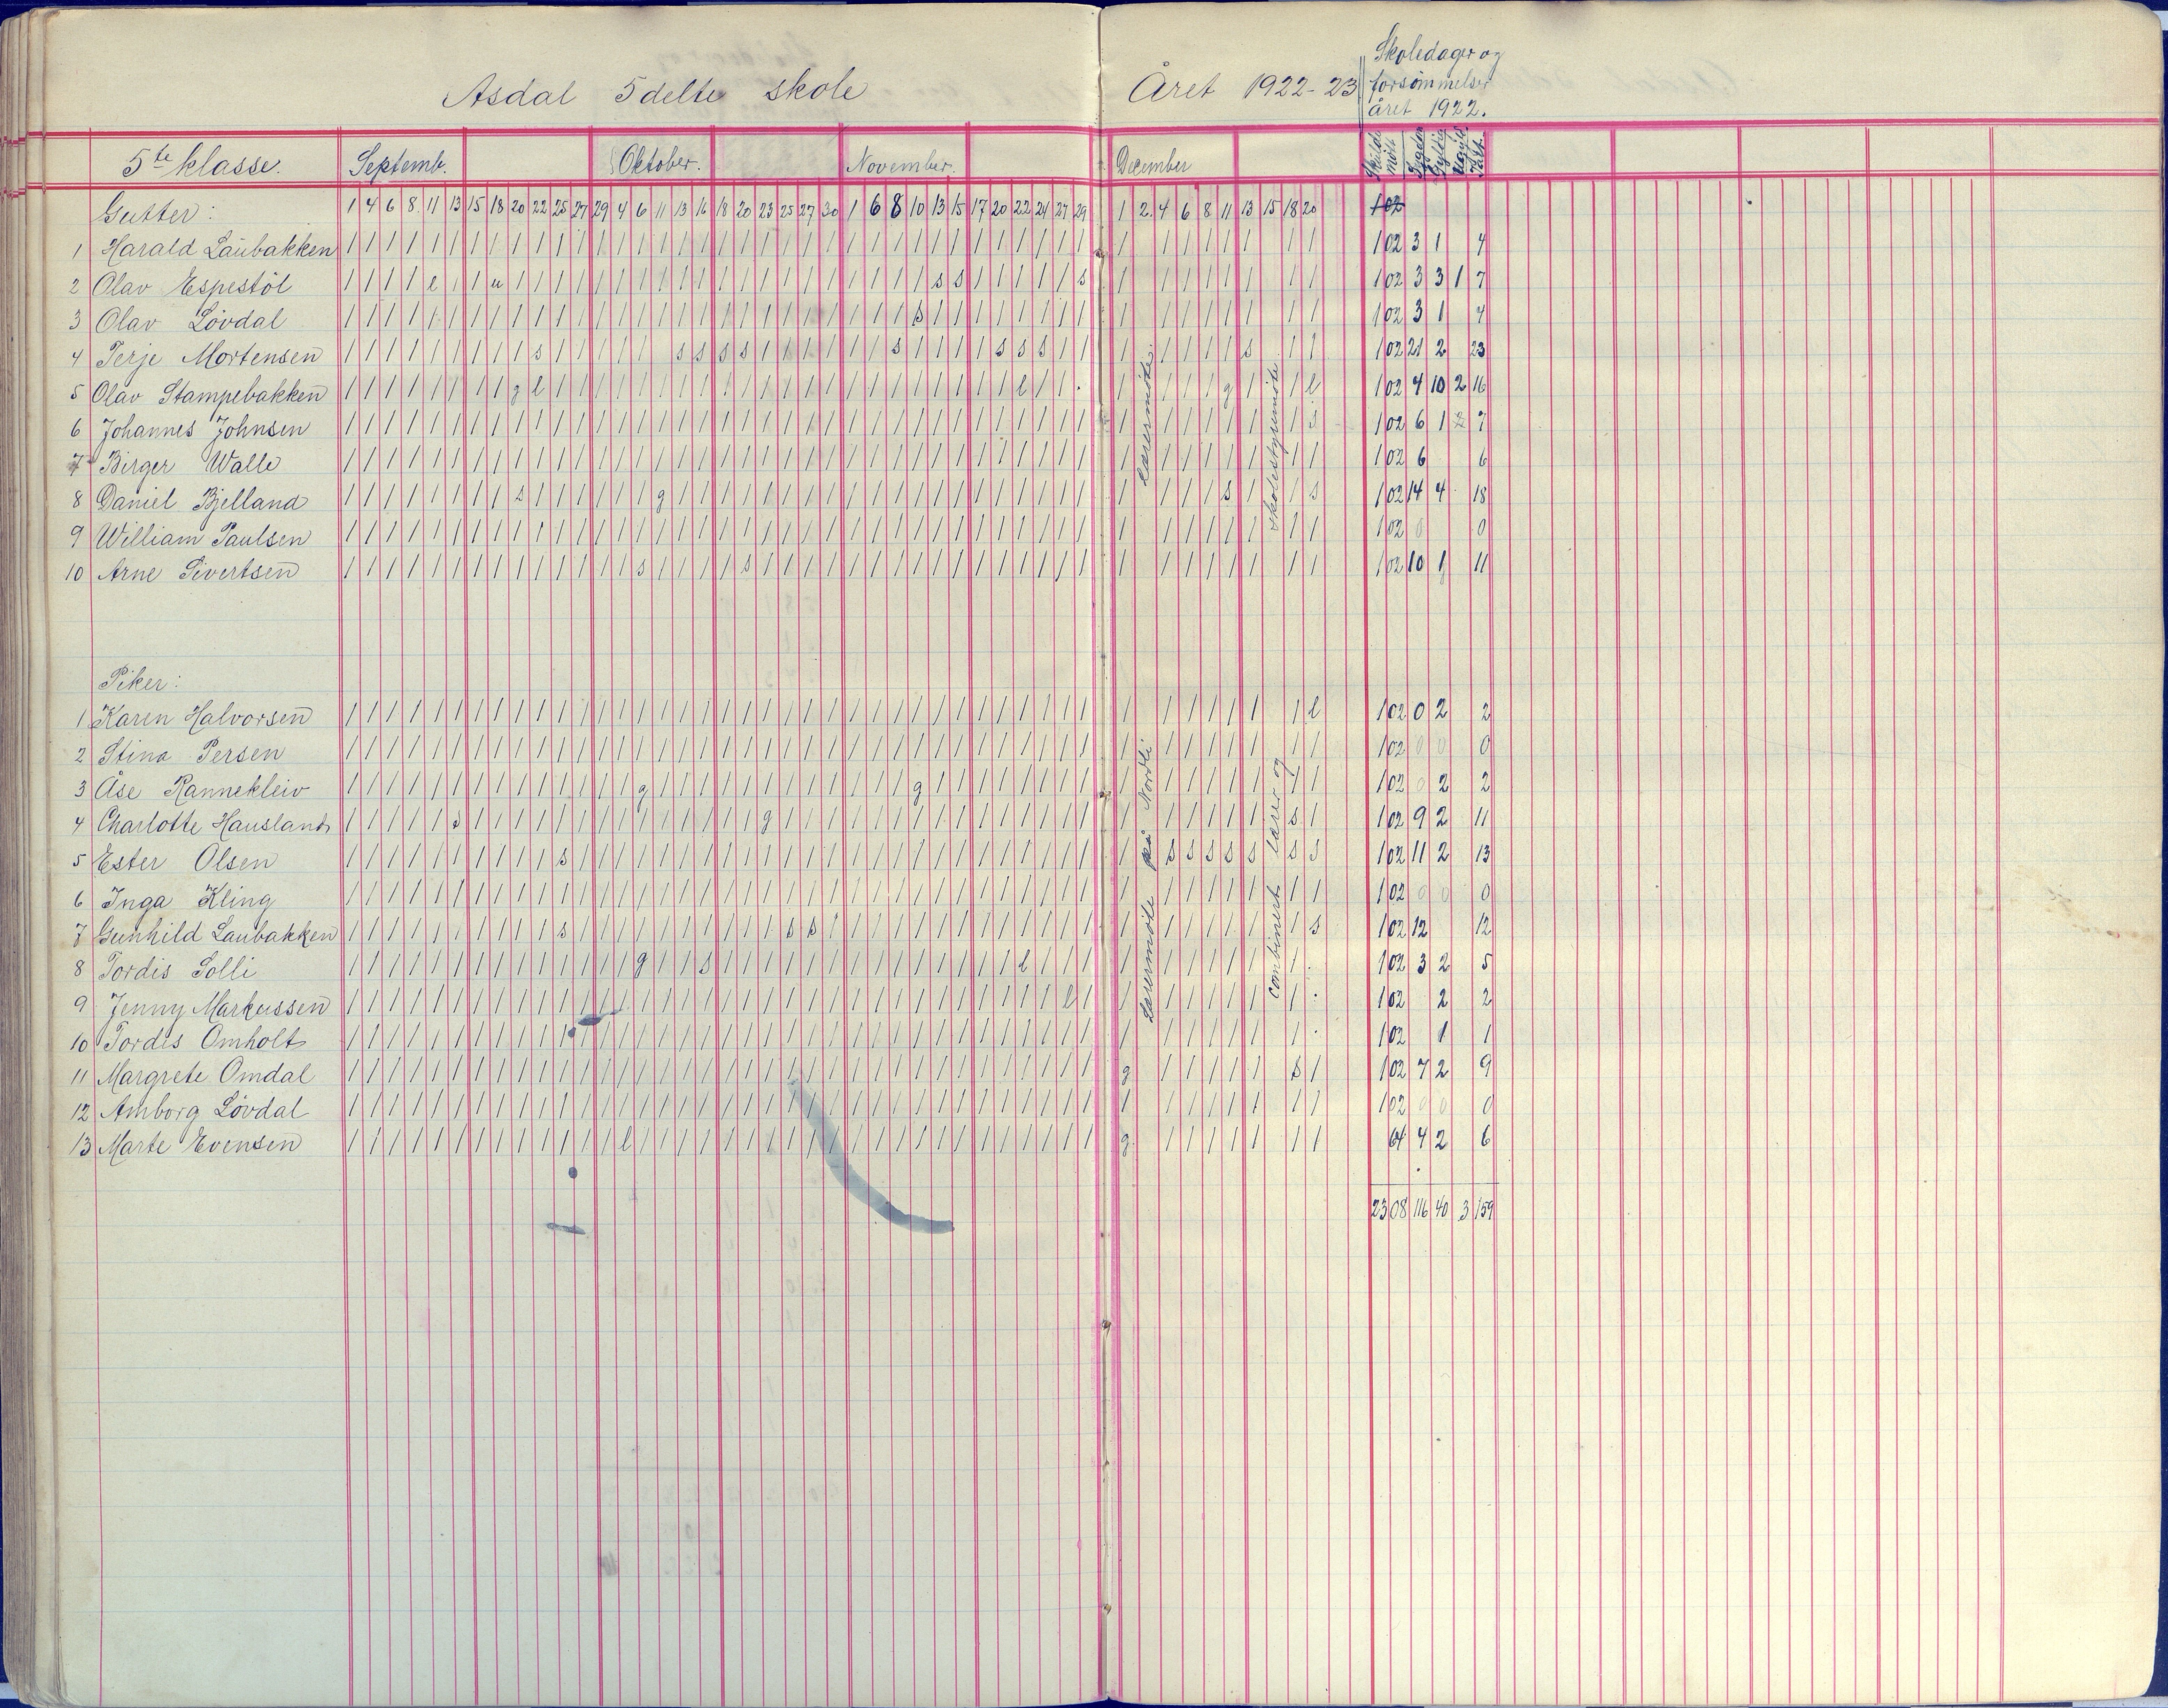 Asdal 5delte skole
Året 1922-23
Skoledager og
forsømmelser
året 1922.
5te klasse. Septemb. Oktober. November. December
Gutter: 1 4 6 8 11 13 15 18 20 22 25 27 29 4 6 11 13 16 18 20 23 25 27 30 1 6 8 10 13 15 17 20 22 24 27 29 1 2 4 6 8 11 13 15 18 20 102
1 Harald Laubakken 102 3 1 4
2 Olav Espestøl 102 3 3 1 7
3 Olav Løvdal 102 3 1 4
4 Terje Mortensen 102 21 2 23
5 Olav Stampebakken 102 4 10 2 16
6 Johannes Johnsen 102 6 1 7
7 Birger Walle 102 6 6
8 Daniel Bjelland 102 14 4 18
9 William Paulsen 102 0 0
10 Arne Sivertsen 102 10 1 11
Piker:
1 Karen Halvorsen 102 0 2 2
2 Stina Persen 102 0 0 0
3 Åse Rannekleiv 102 0 2 2
4 Charlotte Hausland 102 9 2 11
5 Ester Olsen 102 11 2 13
6 Inga Kling 102 0 0 0
7 Gunhild Laubakken 102 12 12
8 Tordis Solli 102 3 2 5
9 Jenny Markussen 102 2 2
10 Tordis Omholt 102 1 1
11 Margrete Omdal 102 7 2 9
12 Amborg Løvdal 102 0 0 0
13 Marte Evensen 64 4 2 6
2308 116 40 3 159
Lærermøte på Nordli lærermøte.
combinert lærer og skolestyremøte